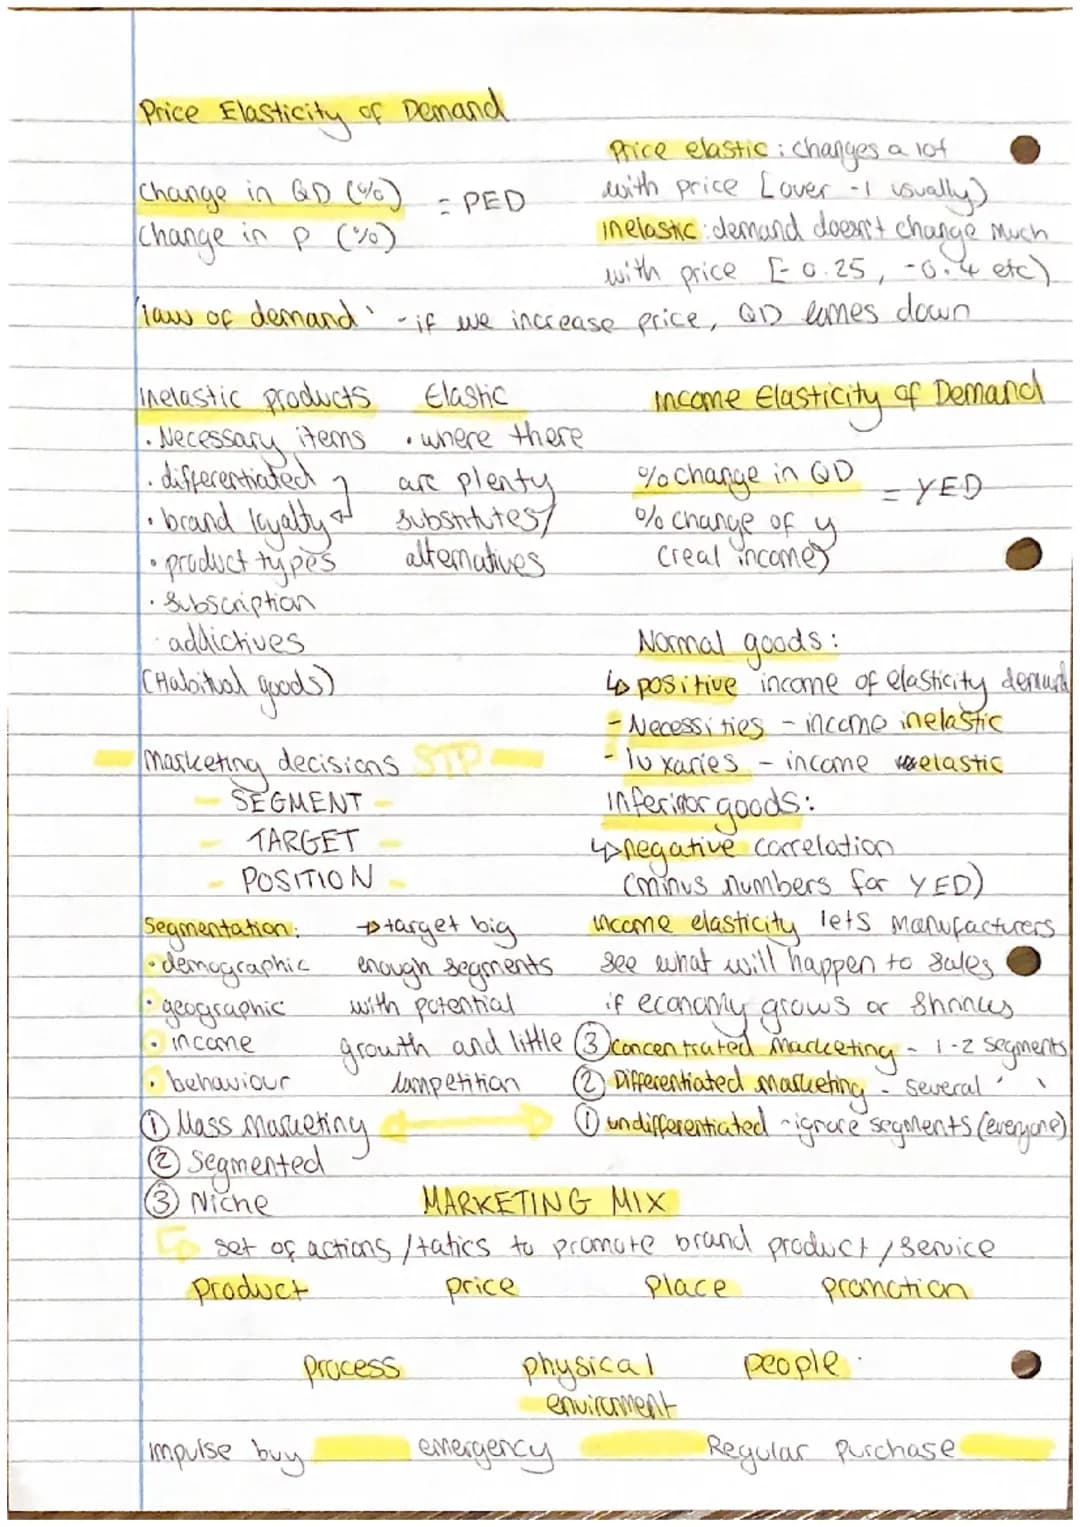 Price Elasticity of Demand
Change in QD (%) = PED
Change in P (%)
Price elastic: changes a lot
with price [over -1 usually)
inelastic: demand doesn't change much
with price [-0.25, -0.4 etc)
'law of demand' - if we increase price, QD comes down
Inelastic products
· Necessary items
· differentiated
· brand loyalty
· product types
· subscription
· addictives
(Habitual goods)
Elastic
· where there
are plenty
substitutes/
alternatives
Income Elasticity of Demand
% change in QD = YED
% change of y
(real income)
Normal goods:
↳ positive income of elasticity demand
- Necessities - income inelastic
- luxaries - income elastic
Inferior goods:
↳ negative correlation
(minus numbers for YED)
income elasticity lets manufacturers
see what will happen to sales
if economy grows or shrinks
Marketing decisions STP
- SEGMENT -
- TARGET -
- POSITION -
Segmentation:
· demographic
· geographic
· income
· behaviour
→ target big
enough segments
with potential
growth and little
competition
③ concentrated marketing - 1-2 segments
② Differentiated marketing - several ' '
① undifferentiated - ignore segments (everyone)
① Mass marketing
② Segmented
③ Niche
MARKETING MIX
↳ set of actions / tatics to promote brand product / service
product price Place promotion
process physical people
environment
impulse buy emergency Regular Purchase